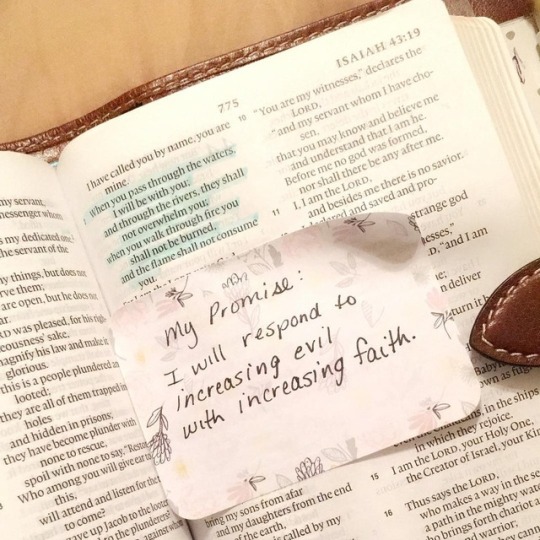 ISAIAH 43:19
775
my servant,
messenger whom
is my dedicated one
the servant of the
ny things, but does not
rve them;
are open, but he does not
LORD was pleased, for his
eousness' sake.
magnify his law and make it
glorious.
this is a people plundered an
looted;
they are all of them trapped in
holes
and hidden in prisons;
they have become plunder with
none to rescue,
spoil with none to say, "Resto
Who among you will give ear to
this,
will attend and listen for the
to come?
gave up Jacob to the looter
to the plunderers
I have called you by name, you are
mine.
When you pass through the waters,
I will be with you;
and through the rivers, they shall
not overwhelm you;
when you walk through fire you
shall not be burned,
and the flame shall not consume
you.
My Promise:
I will respond to
increasing evil
with increasing faith.
bring my sons from afar
and my daughters from the end
of the earth,
is called by my
10 "You are my witnesses," declares the
LORD,
"and my servant whom I have cho-
sen,
that you may know and believe me
and understand that I am he.
Before me no god was formed,
nor shall there be any after me.
11 I, I am the LORD,
and besides me there is no savior.
declared and saved and pro-
strange god
LORD, "and I am
deliver
turn it b
own as fug
in the ships
in which they rejoice.
15 I am the LORD, your Holy One,
the Creator of Israel, your Kin
16 Thus says the LORD,
who makes a way in the se
a path in the mighty wat
who brings forth chariot a
and warrior;